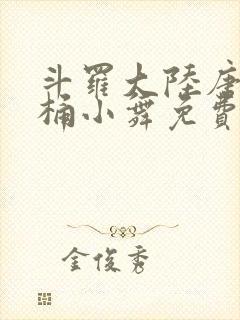 斗羅大陸唐
桶小舞免費
金俊秀